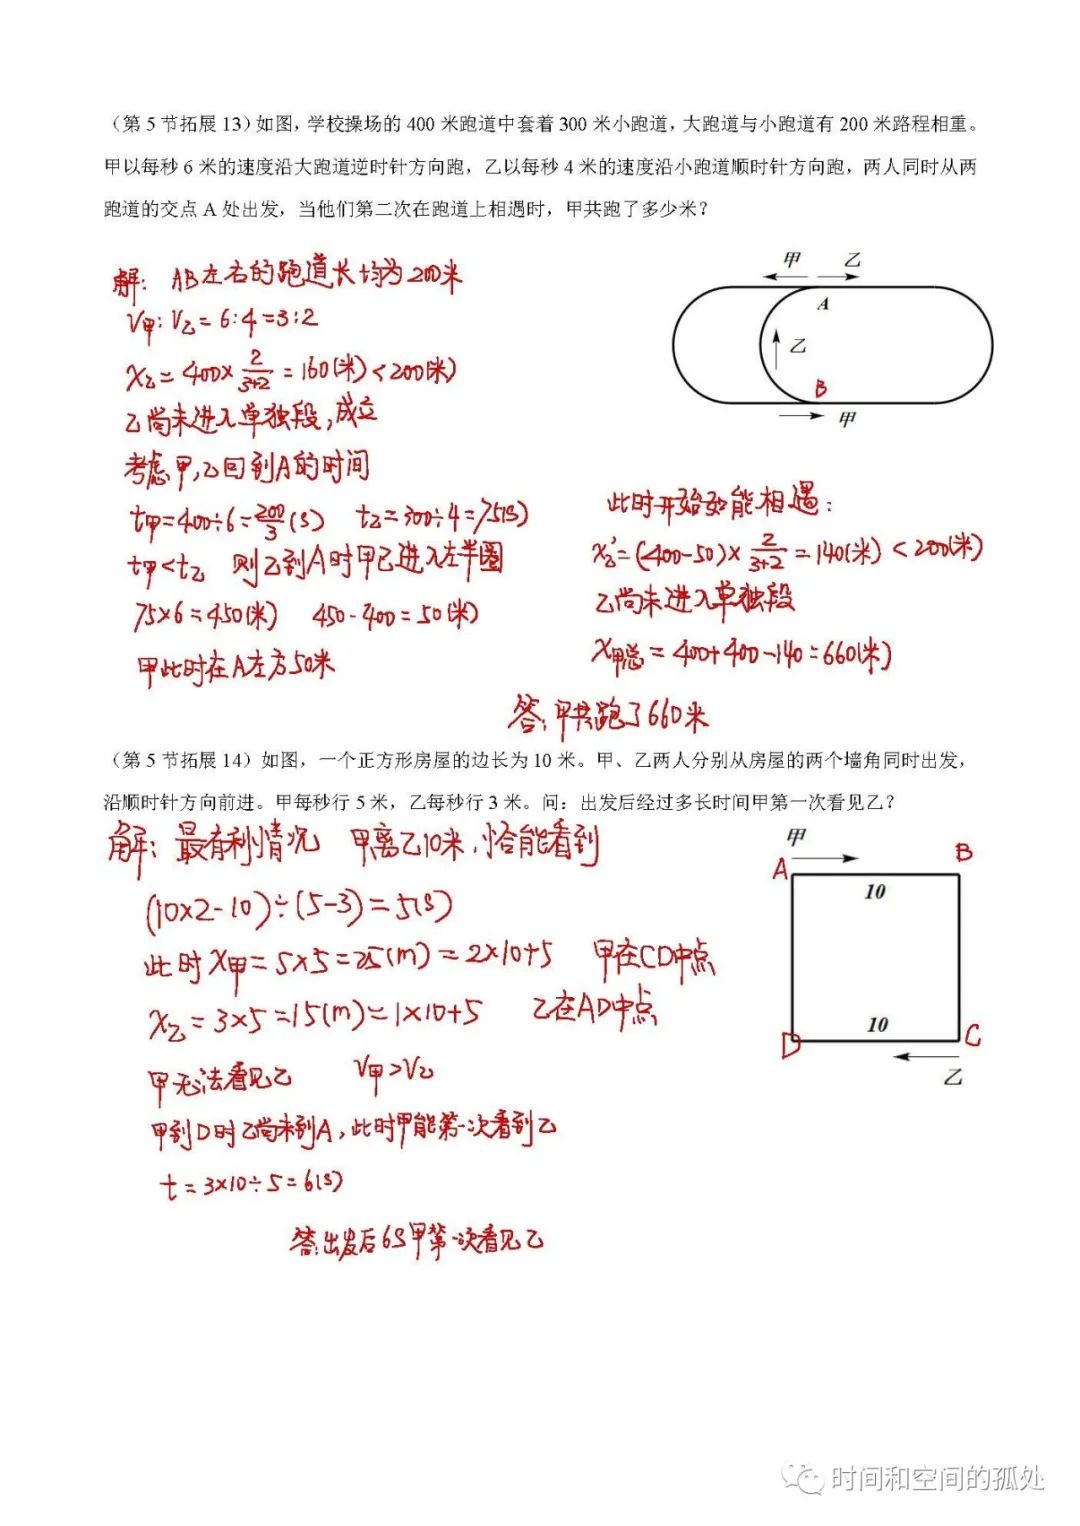 （第 5 节拓展 13）如图，学校操场的 400 米跑道中套着 300 米小跑道，大跑道与小跑道有 200 米路程相重。
甲以每秒 6 米的速度沿大跑道逆时针方向跑，乙以每秒 4 米的速度沿小跑道顺时针方向跑，两人同时从两
跑道的交点 A 处出发，当他们第二次在跑道上相遇时，甲共跑了多少米？
解：AB左右的跑道长均为200米
V甲:V乙=6:4=3:2
x乙=400×2/(3+2)=160(米)<200(米)
乙尚未进入单独段，成立
考虑甲，乙回到A的时间
t甲=400÷6=200/3(s) t乙=300÷4=75(s)
t甲<t乙 则乙到A时甲已进入左半圈
75×6=450(米) 450-400=50(米)
甲此时在A左方50米
甲 乙
A
乙
B
甲
此时开始如能相遇：
x乙'=(400-50)×2/(3+2)=140(米)<200(米)
乙尚未进入单独段
x甲总=400+400-140=660(米)
答：甲共跑了660米
（第 5 节拓展 14）如图，一个正方形房屋的边长为 10 米。甲、乙两人分别从房屋的两个墙角同时出发，
沿顺时针方向前进。甲每秒行 5 米，乙每秒行 3 米。问：出发后经过多长时间甲第一次看见乙？
解：最有利情况 甲离乙10米，恰能看到
(10×2-10)÷(5-3)=5(s)
此时x甲=5×5=25(m)=2×10+5 甲在CD中点
x乙=3×5=15(m)=1×10+5 乙在AD中点
甲无法看见乙 V甲>V乙
甲到D时乙尚未到A，此时甲能第一次看到乙
t=3×10÷5=6(s)
答：出发后6s甲第一次看见乙
甲
A B
10
10
D C
乙
时间和空间的孤处